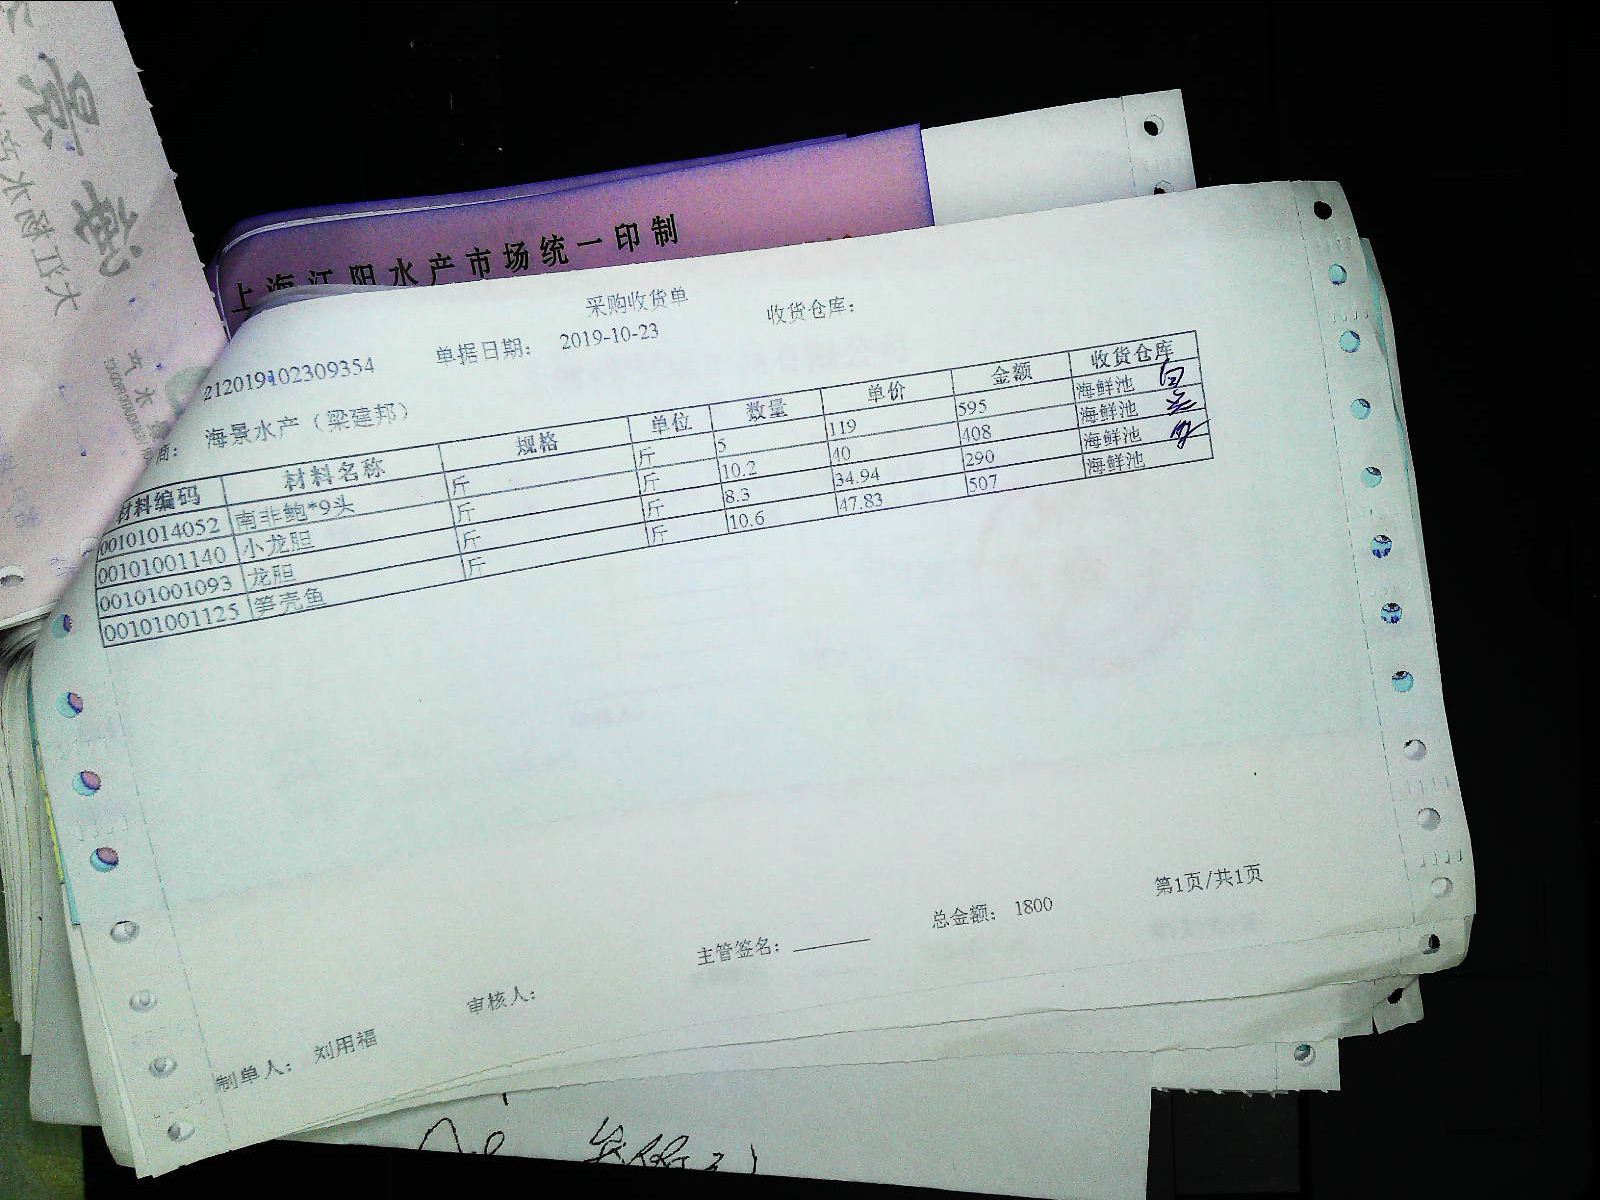 上海江阳水产市场统一印制
采购收货单
212019102309354 单据日期: 2019-10-23 收货仓库:
商: 海景水产(梁建邦)
材料编码 材料名称 规格 单位 数量 单价 金额 收货仓库
00101014052 南非鲍*9头 斤 斤 5 119 595 海鲜池
00101001140 小龙胆 斤 斤 10.2 40 408 海鲜池
00101001093 龙胆 斤 斤 8.3 34.94 290 海鲜池
00101001125 笋壳鱼 斤 斤 10.6 47.83 507 海鲜池
制单人: 刘用福 审核人: 主管签名: 总金额: 1800 第1页/共1页